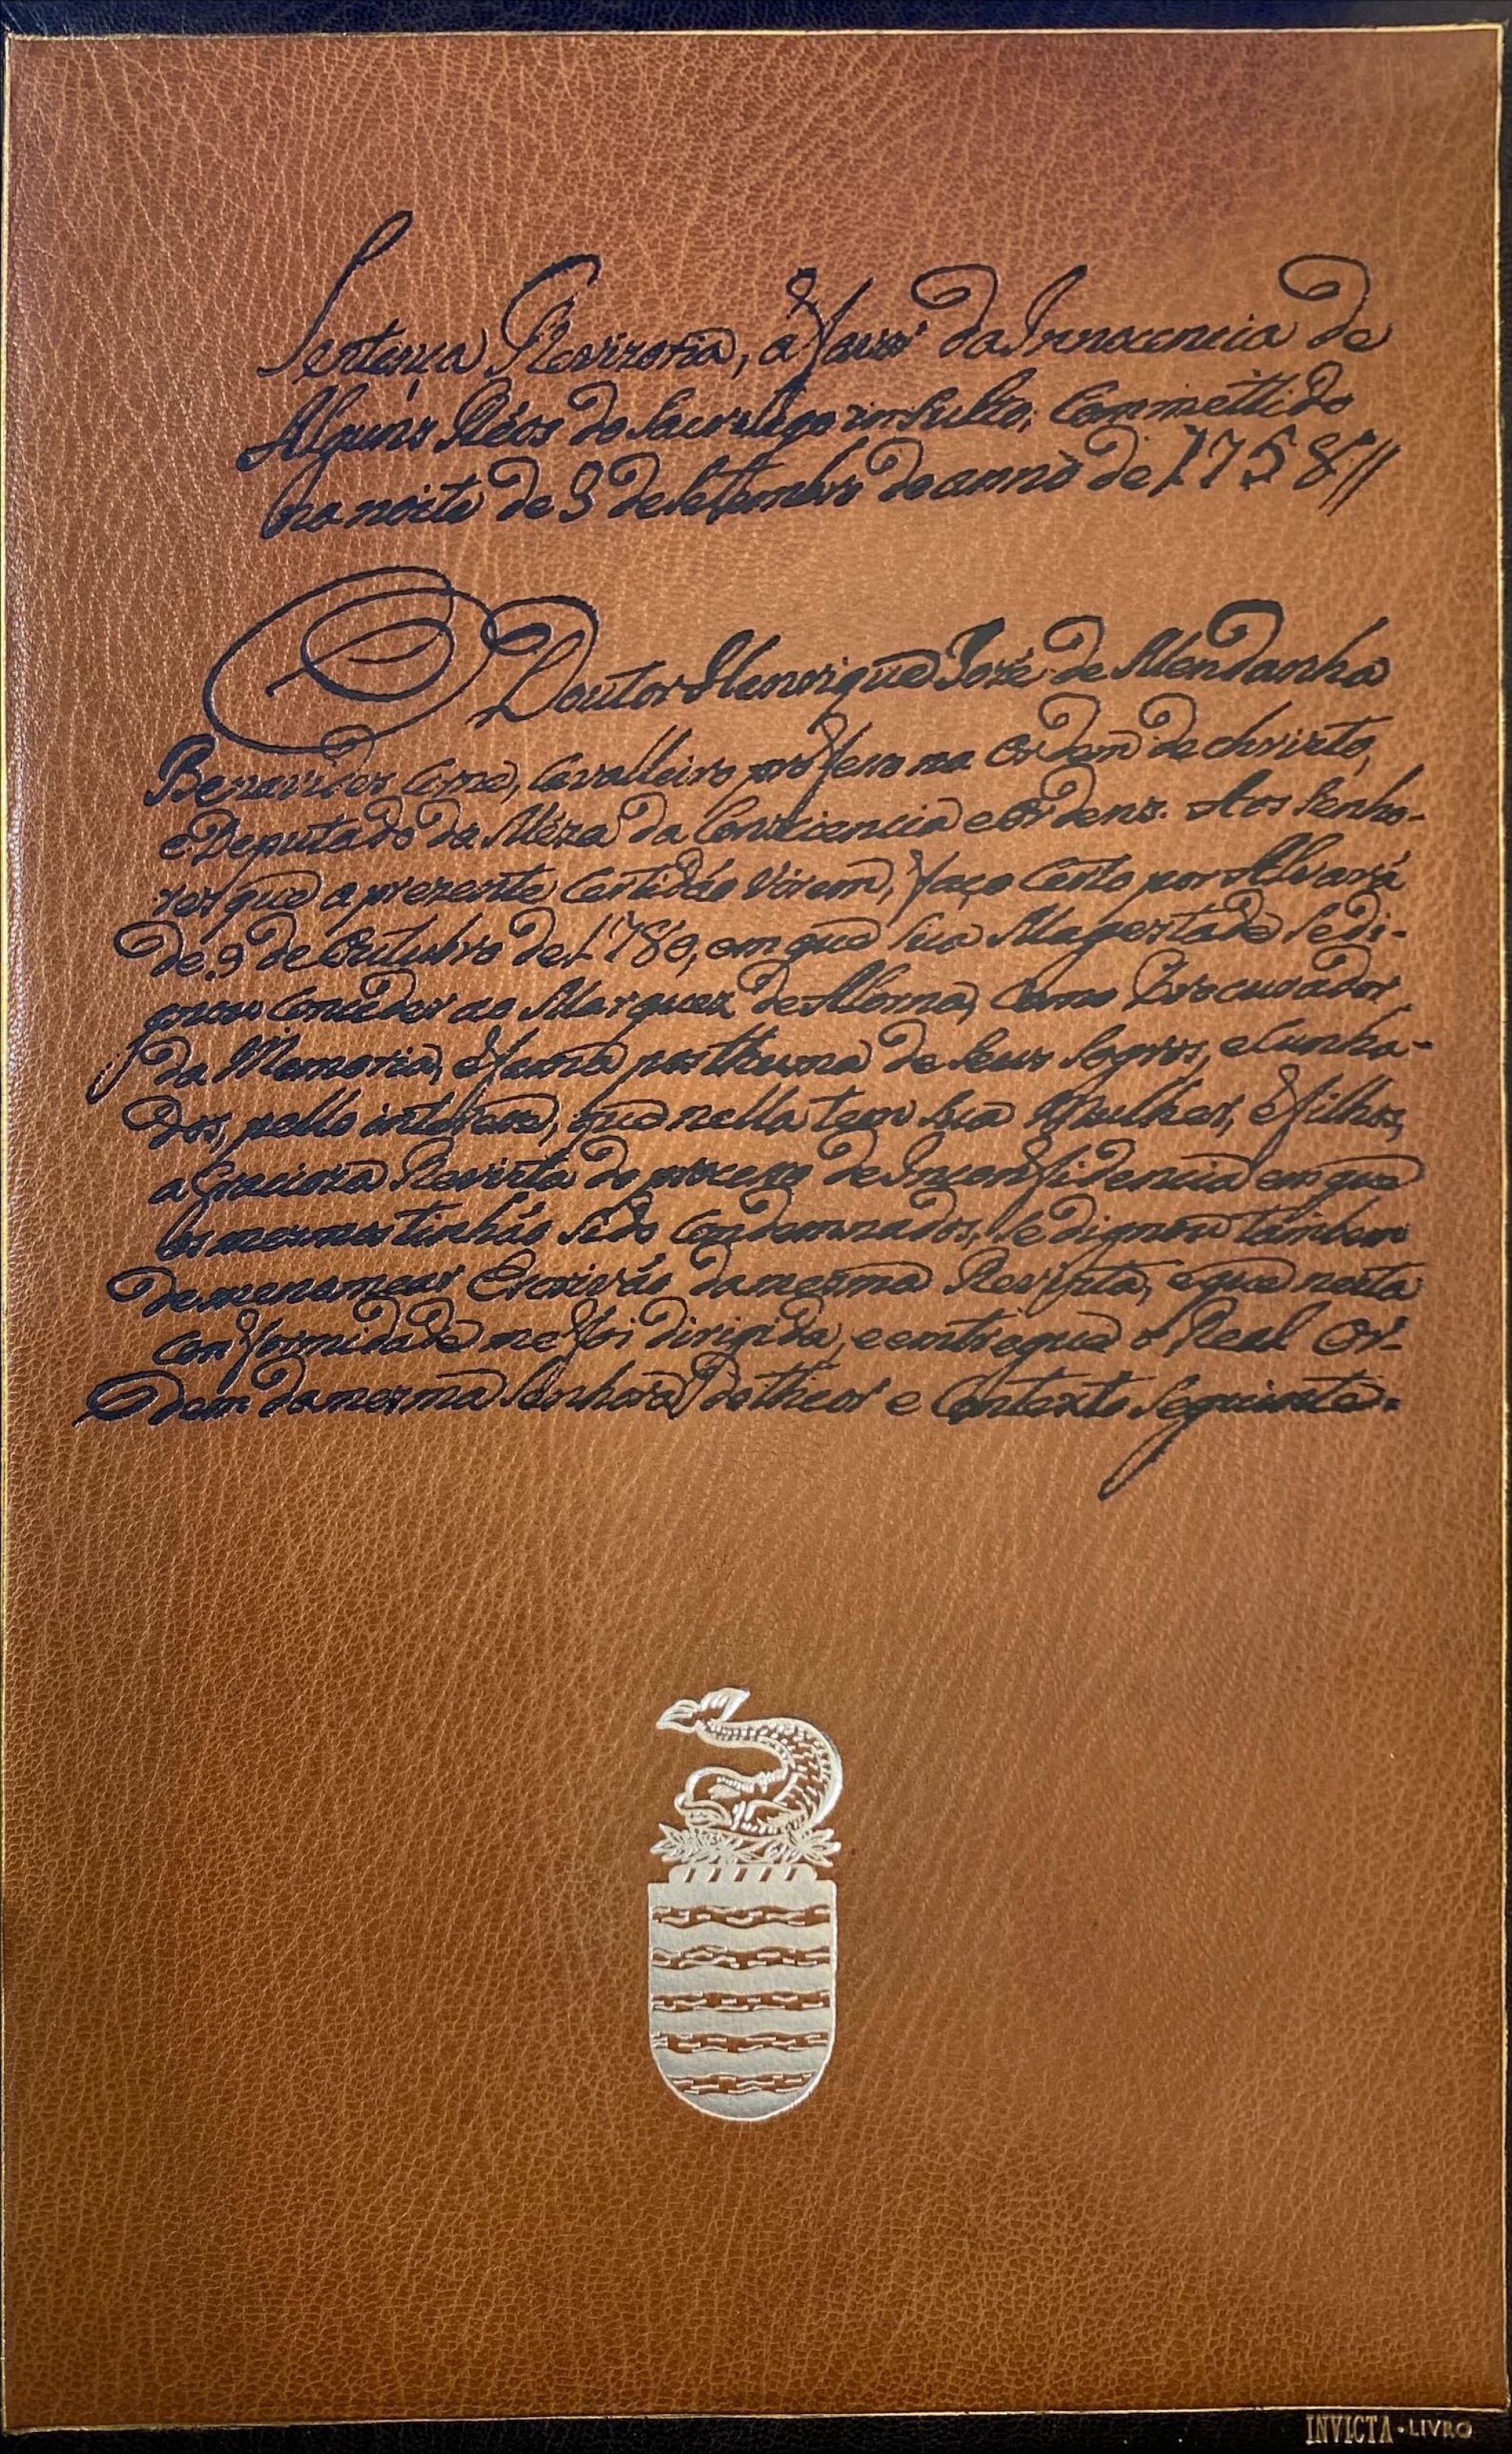 Sentença Revizoria, a favor da Innocencia de
Alguns Réos do Sacrilégo insulto, Commettido
na noite de 3 de Setembro do anno de 1758//
O Doutor Henrique Jozé de Mendanha
Benavides Cirne, Cavalleiro professo na Ordem de christo,
e Deputado da Mèza da Consciencia e Ordens. Aos Senho-
res que a prezente Certidáo virem, faço Certo por Alvará
de 9 de Outubro de 1780, em que Sua Magestade Se di-
gnou Conceder ao Marquez de Alorna, Como Procurador
da Memoria, e fama posthuma de Seus Sogros, e Cunha-
dos, pello interesse, que nella tem Sua Mulher, e filhos,
a Gracioza Revista do processo de Inconfidencia em que
os mesmos tinháo Sido Condemnados, Se dignou tambem
de me nomear Escriváo da mesma Revista, e que nesta
conformidade me foi dirigida, e entregue a Real Or-
dem da mesma Senhora do theor e Contexto Seguinte.
INVICTA · LIVRO